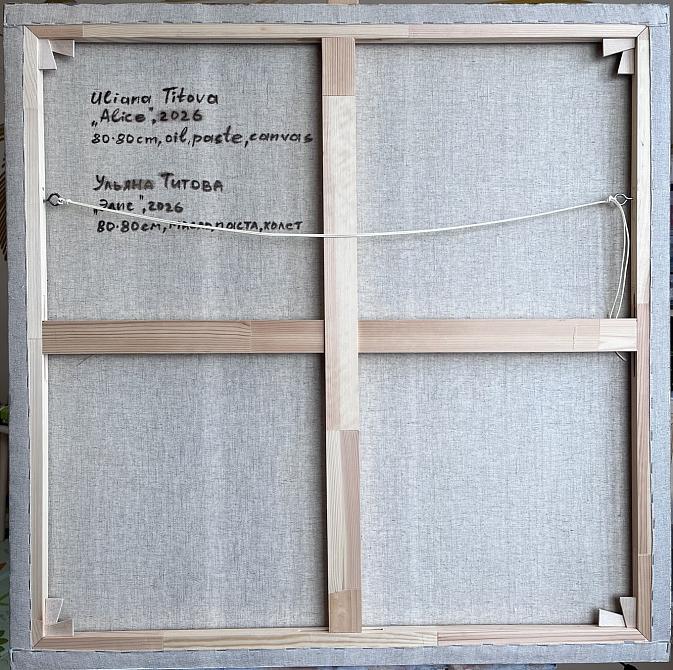 Uliana Titova
„Alice", 2026
80·80cm, oil, paste, canvas
Ульяна Титова
„Элис", 2026
80·80см, масло, паста, холст